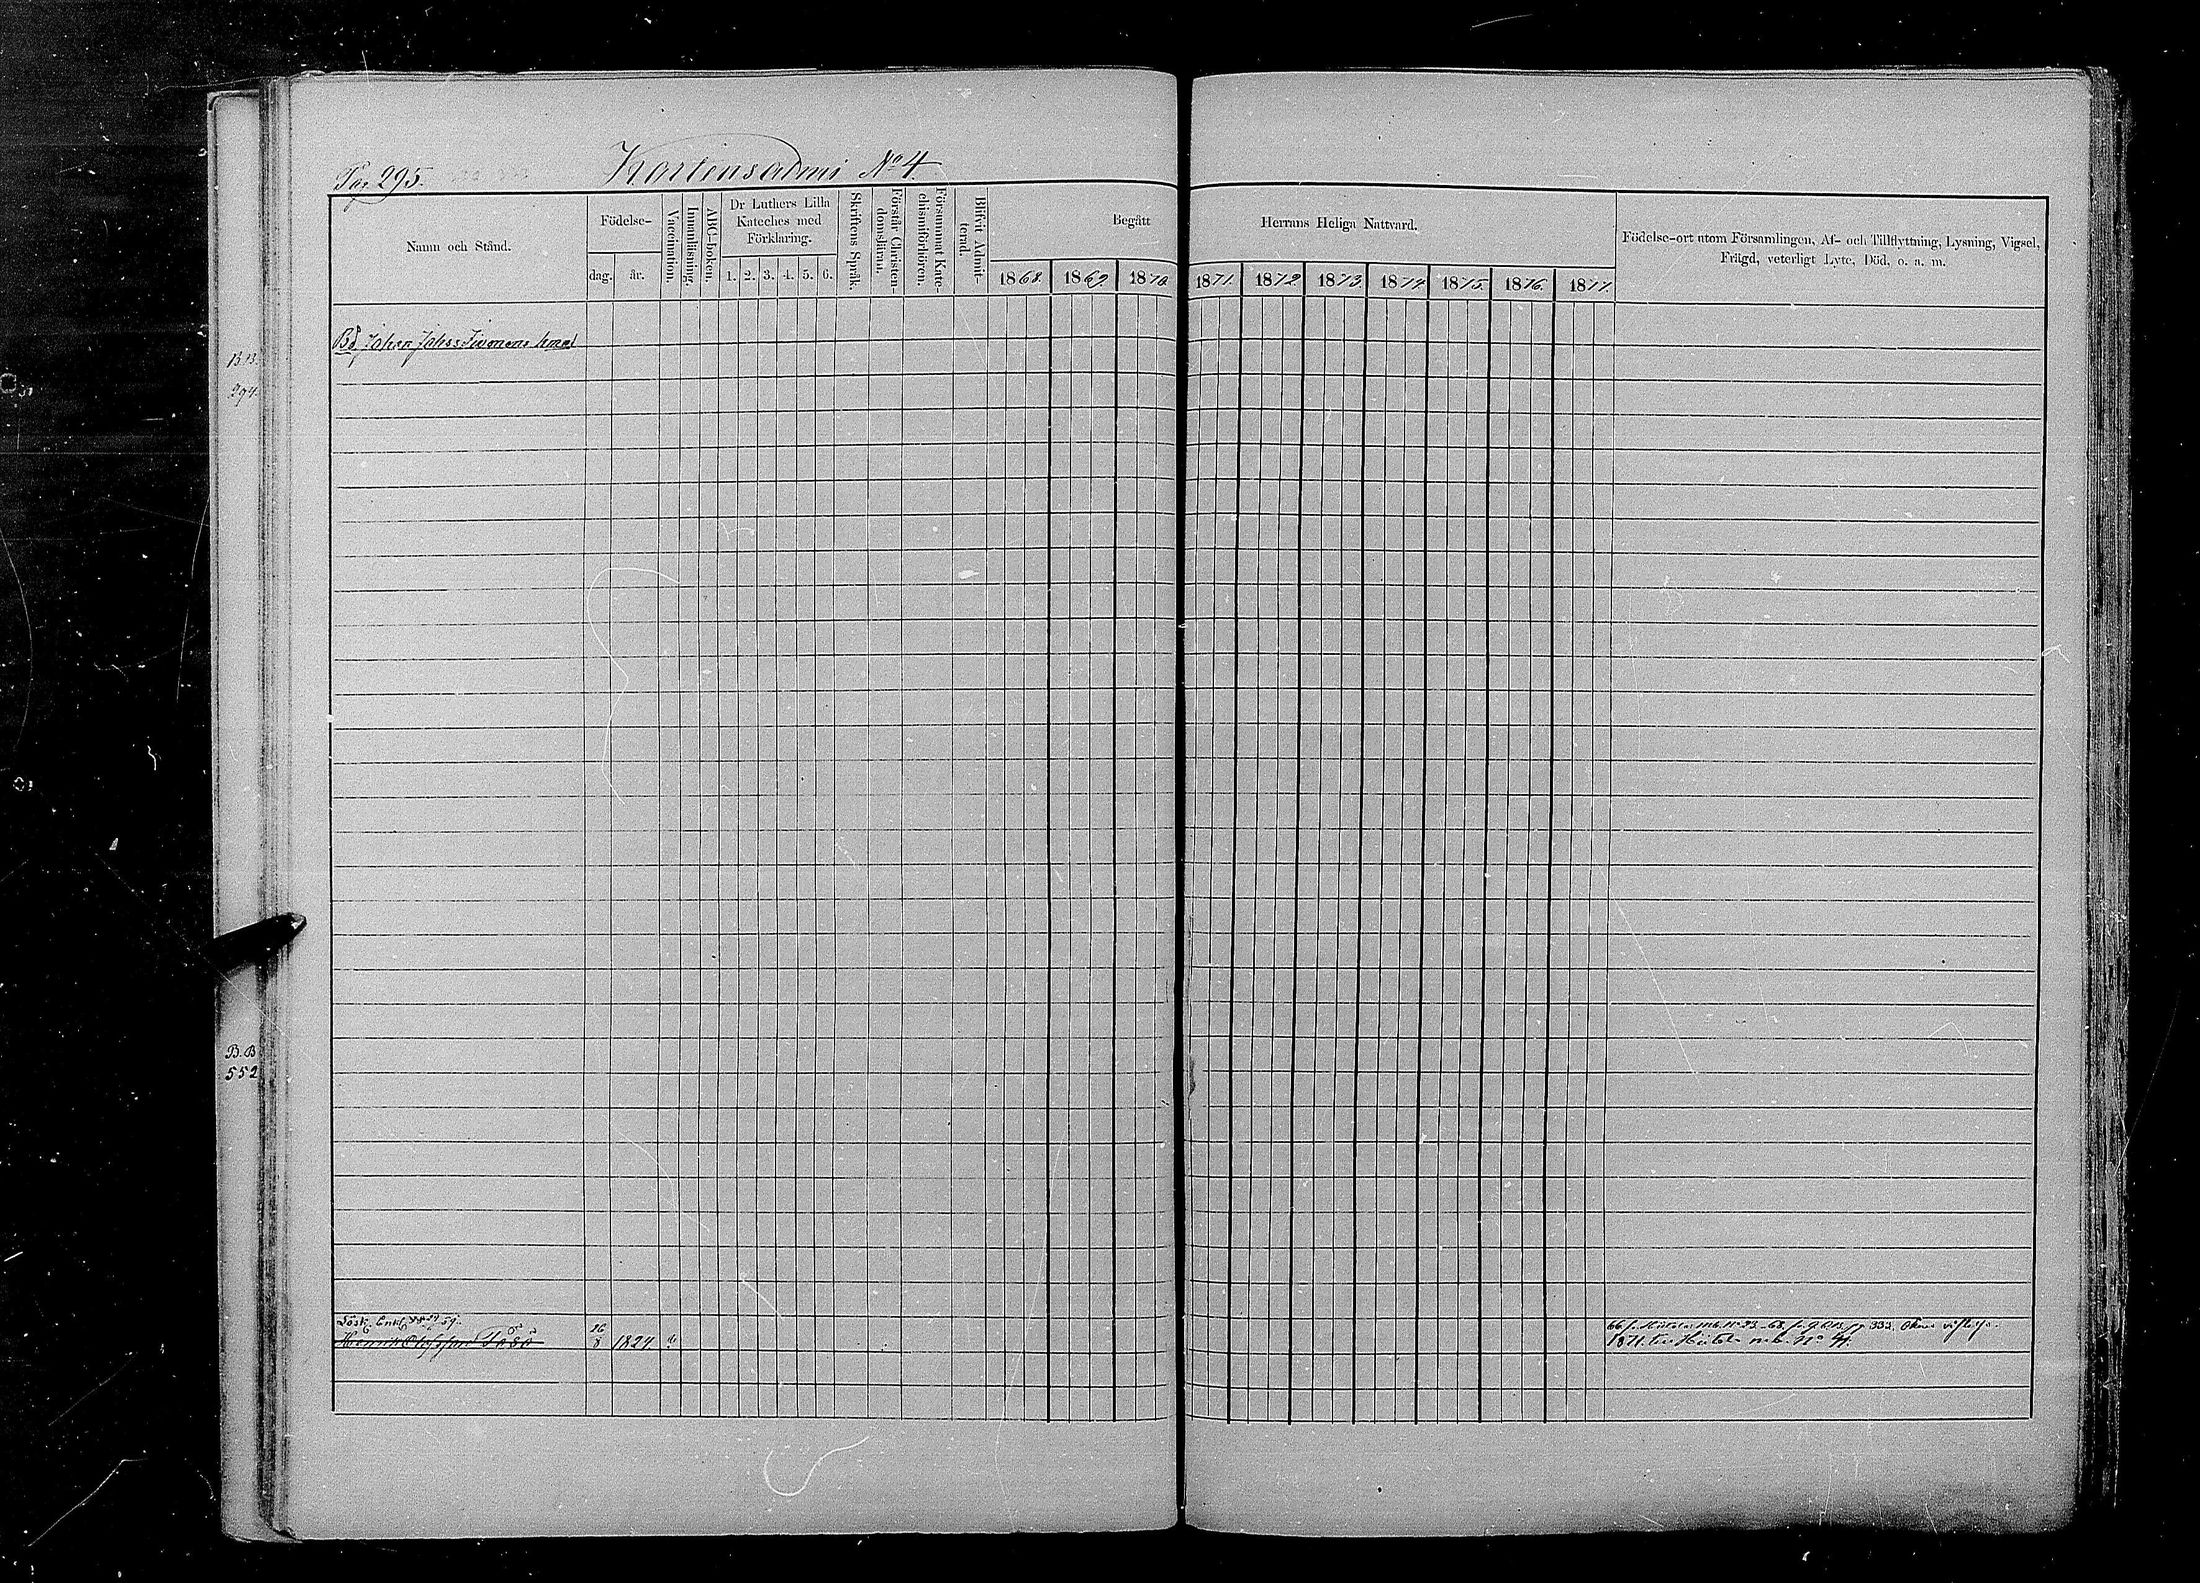 Pag. 295.
Kortensalmi No 4.
Namn och Stånd.
Födelse-
dag.
år.
Vaccination.
Innanläsning.
ABC-boken.
Dr Luthers Lilla
Kateches med
Förklaring.
1. 2. 3. 4. 5. 6.
Skriftens Språk.
Förstår Christen-
domsläran.
Försummat Kate-
chismiförhören.
Blifvit Admit-
terad.
Begått
Herrans Heliga Nattvard.
1868. 1869. 1870. 1871. 1872. 1873. 1874. 1875. 1876. 1877.
Födelse-ort utom Församlingen, Af- och Tillflyttning, Lysning, Vigsel,
Frägd, veterligt Lyte, Död, o. a. m.
Bd Johan Johss
B.B.
294.
B.B.
552
59.
Henrik
26/8 1824
333.
1871. till No 4.